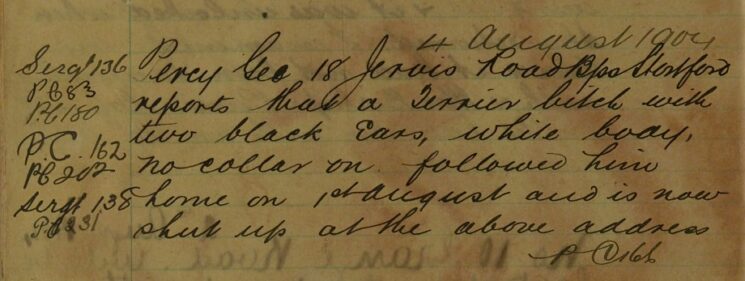 4 August 1904
Sergt 136
PC 83
PC 180
PC. 162
PC 202
Sergt 138
PC 231
Percy Gee 18 Jervis Road Bps Stortford
reports that a Terrier bitch with
two black Ears, white body,
no collar on followed him
home on 1st August and is now
shut up at the above address
PC 166